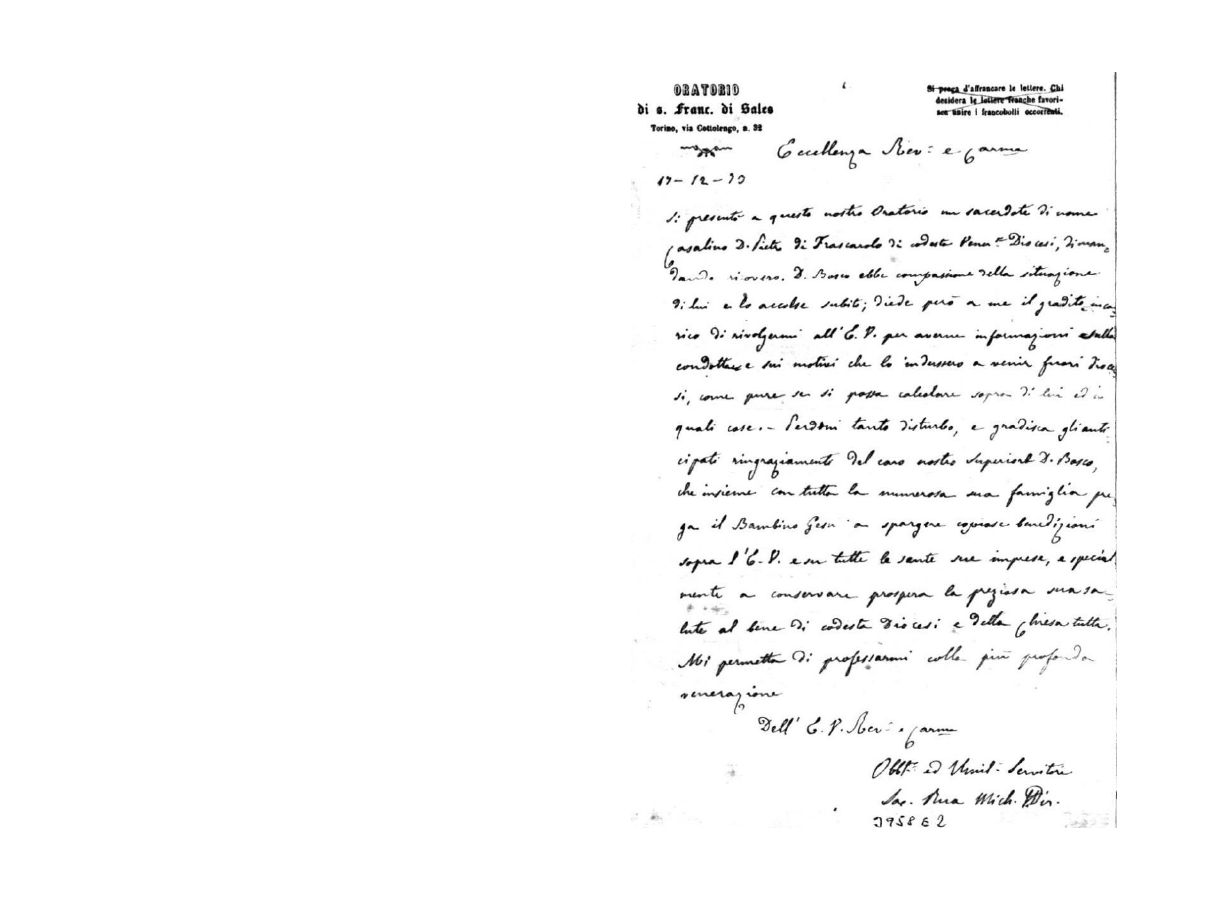 ORATORIO
di s. Franc. di Sales
Torino, via Cottolengo, n. 32
Si prega d'affrancare le lettere. Chi
desidera le lettere franche favori-
sca unire i francobolli occorrenti.
Eccellenza Rev.ma e Carma
17-12-70
Si presentò a questo nostro Oratorio un sacerdote di nome
Casalino D. Pietro di Frascarolo di codesta Diocesi, diman-
dando ricovero. D. Bosco ebbe compassione della situazione
di lui e lo accolse subito; diede però a me il gradito inca-
rico di rivolgermi all'E.V. per averne informazioni sulla
condotta e sui motivi che lo indussero a venir fuori dioce
si, come pure se si possa calcolare sopra di lui ed in
quali cose. - Perdoni tanto disturbo, e gradisca gli anti
cipati ringraziamenti del caro nostro Superiore D. Bosco,
che insieme con tutta la numerosa sua famiglia pre
ga il Bambino Gesù a spargere copiose benedizioni
sopra l'E.V. e su tutte le sante sue imprese, e special
mente a conservare prospera la preziosa sua sa-
lute al bene di codesta Diocesi e della Chiesa tutta.
Mi permetta di professarmi colla più profonda
venerazione
Dell'E.V. Rev.ma e Carma
Obbl. ed Umil. Servitore
Sac. Rua Mich. Dir.
3958E2